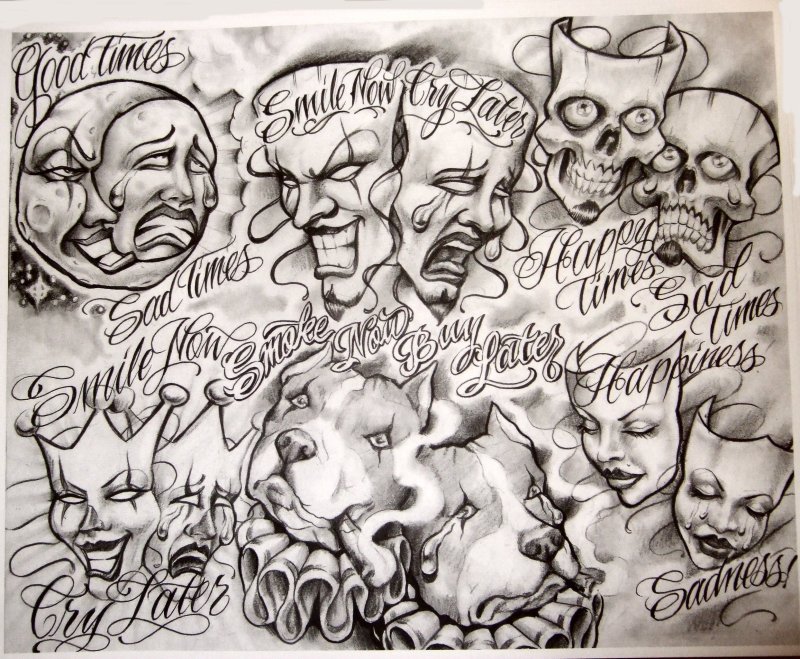 Good Times
Sad Times
Smile Now Cry Later
Happy
Times
Sad
Times
Smile Now
Cry Later
Smoke Now Buy Later
Happiness
Sadness!